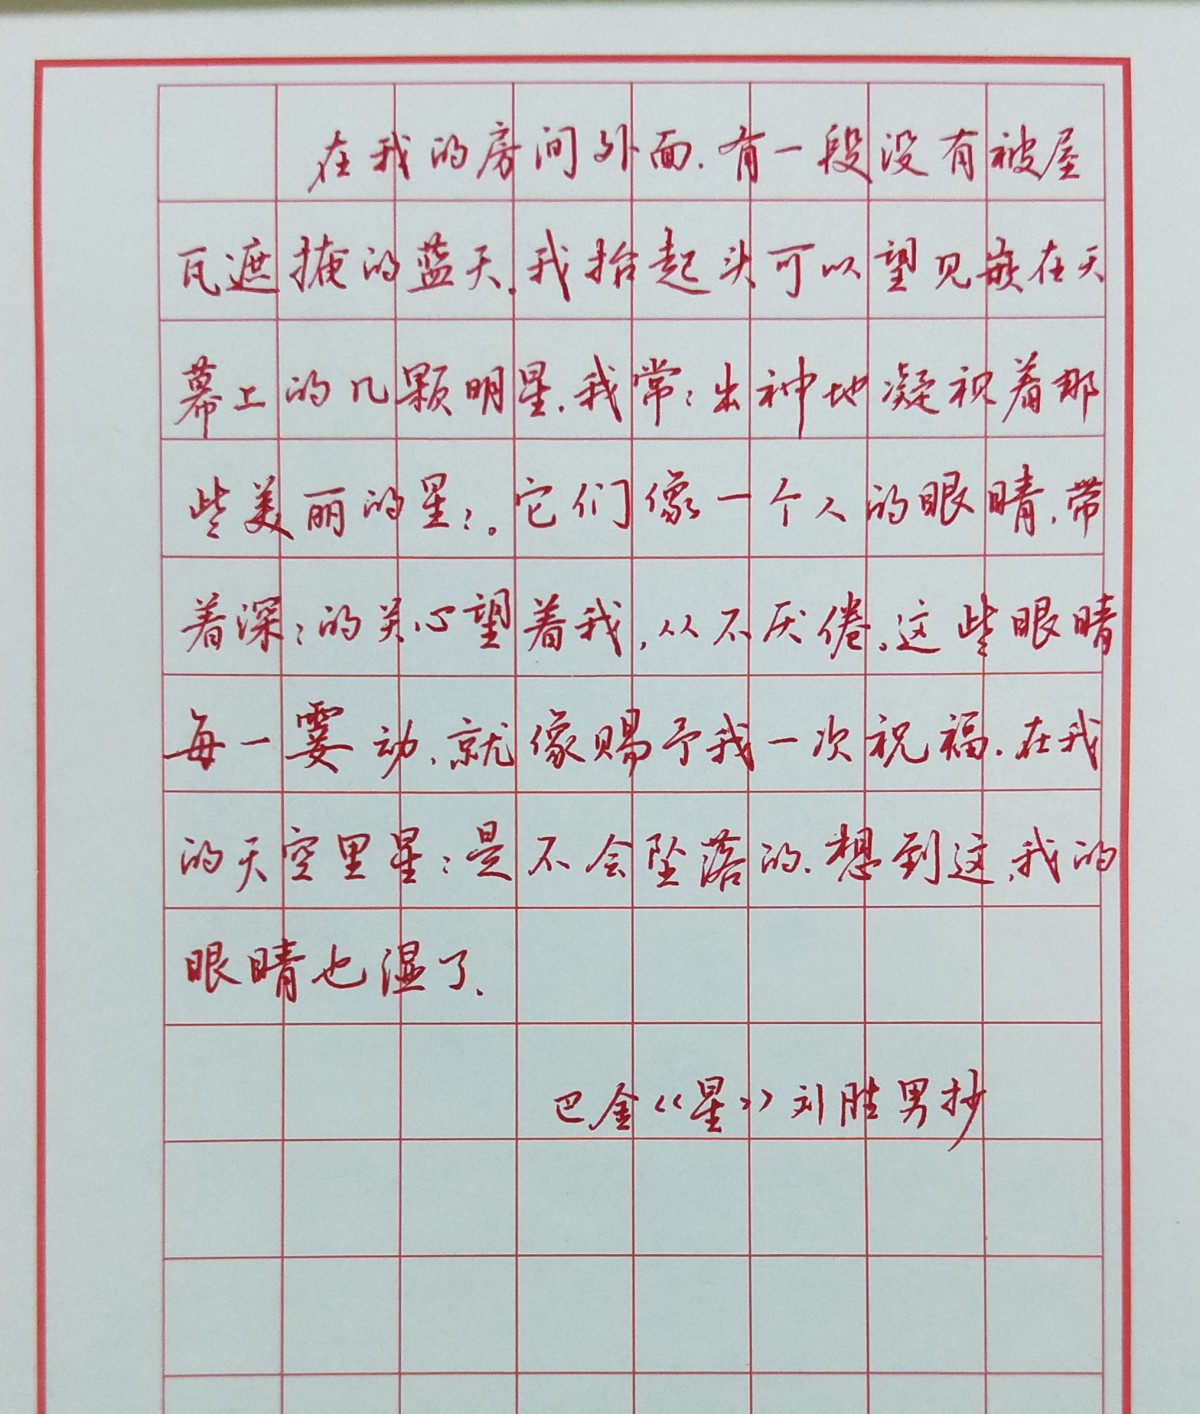 在我的房间外面.有一段没有被屋
瓦遮掩的蓝天.我抬起头可以望见嵌在天
幕上的几颗明星.我常:出神地凝视着那
些美丽的星:。它们像一个人的眼睛,带
着深:的关心望着我,从不厌倦。这些眼睛
每一霎动,就像赐予我一次祝福.在我
的天空里星:是不会坠落的.想到这,我的
眼睛也湿了.
巴金《星》刘胜男抄